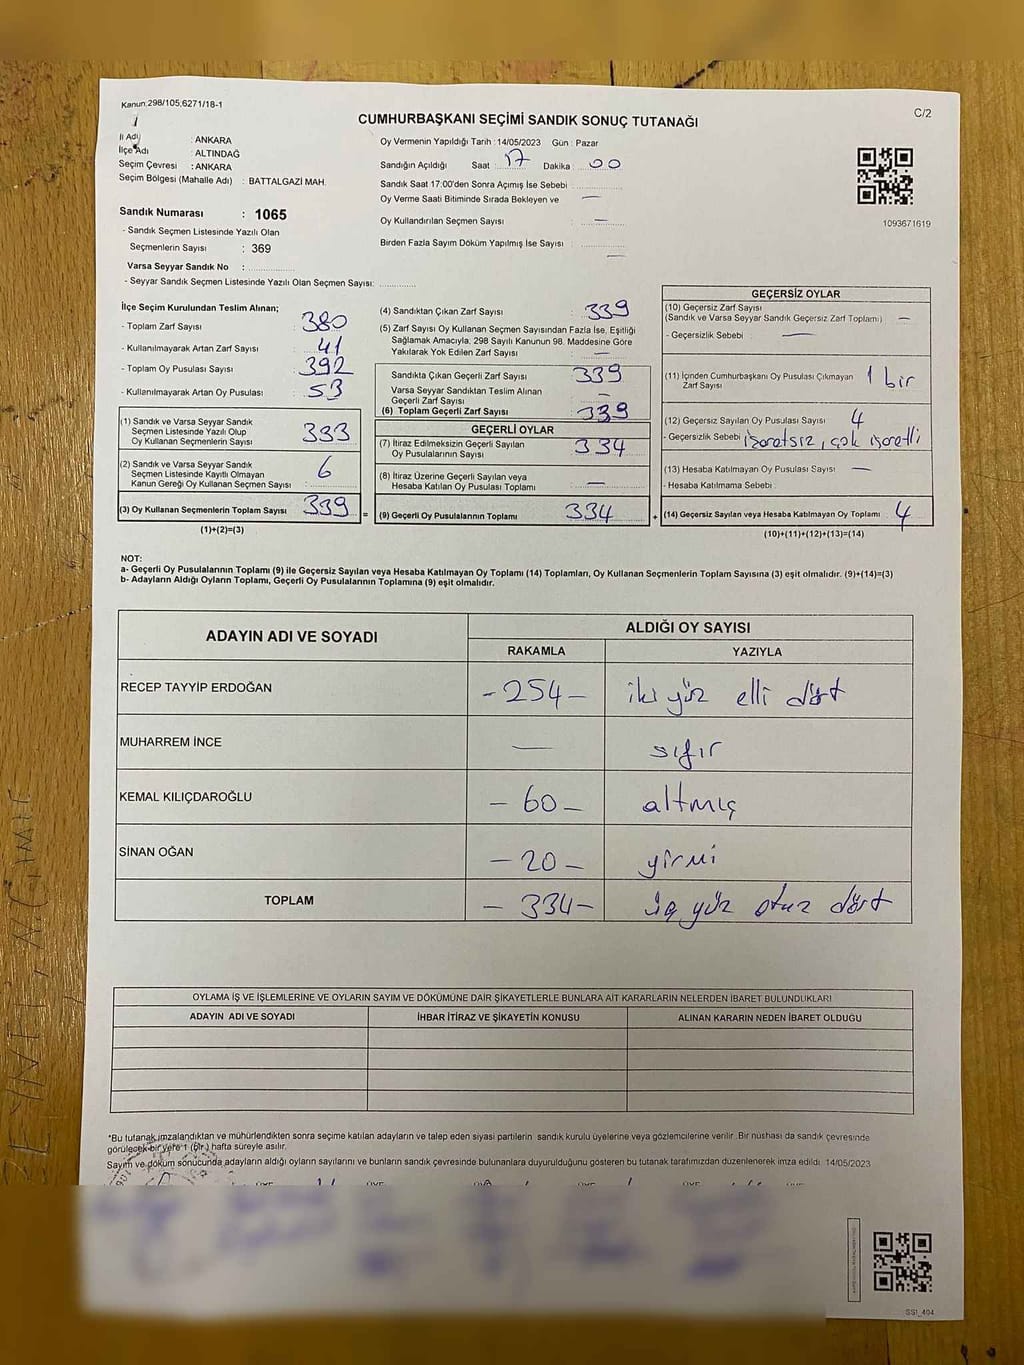 Kanun:298/105,6271/18-1
C/2
CUMHURBAŞKANI SEÇİMİ SANDIK SONUÇ TUTANAĞI
İl Adı : ANKARA
İlçe Adı : ALTINDAĞ
Seçim Çevresi : ANKARA
Seçim Bölgesi (Mahalle Adı) : BATTALGAZİ MAH.
Sandık Numarası : 1065
- Sandık Seçmen Listesinde Yazılı Olan
Seçmenlerin Sayısı : 369
Varsa Seyyar Sandık No :
- Seyyar Sandık Seçmen Listesinde Yazılı Olan Seçmen Sayısı:
Oy Vermenin Yapıldığı Tarih : 14/05/2023 Gün : Pazar
Sandığın Açıldığı Saat : 17 Dakika : 00
Sandık Saat 17:00'den Sonra Açımış İse Sebebi :
Oy Verme Saati Bitiminde Sırada Bekleyen ve —
Oy Kullandırılan Seçmen Sayısı : —
Birden Fazla Sayım Döküm Yapılmış İse Sayısı : —
1093671619
İlçe Seçim Kurulundan Teslim Alınan;
- Toplam Zarf Sayısı : 380
- Kullanılmayarak Artan Zarf Sayısı : 41
- Toplam Oy Pusulası Sayısı : 392
- Kullanılmayarak Artan Oy Pusulası : 53
(1) Sandık ve Varsa Seyyar Sandık
Seçmen Listesinde Yazılı Olup
Oy Kullanan Seçmenlerin Sayısı : 333
(2) Sandık ve Varsa Seyyar Sandık
Seçmen Listesinde Kayıtlı Olmayan
Kanun Gereği Oy Kullanan Seçmen Sayısı : 6
(3) Oy Kullanan Seçmenlerin Toplam Sayısı : 339
(1)+(2)=(3)
(4) Sandıktan Çıkan Zarf Sayısı : 339
(5) Zarf Sayısı Oy Kullanan Seçmen Sayısından Fazla İse, Eşitliği
Sağlamak Amacıyla, 298 Sayılı Kanunun 98. Maddesine Göre
Yakılarak Yok Edilen Zarf Sayısı : —
Sandıkta Çıkan Geçerli Zarf Sayısı : 339
Varsa Seyyar Sandıktan Teslim Alınan
Geçerli Zarf Sayısı : —
(6) Toplam Geçerli Zarf Sayısı : 339
GEÇERLİ OYLAR
(7) İtiraz Edilmeksizin Geçerli Sayılan
Oy Pusulalarının Sayısı : 334
(8) İtiraz Üzerine Geçerli Sayılan veya
Hesaba Katılan Oy Pusulası Toplamı : —
= (9) Geçerli Oy Pusulalarının Toplamı : 334
GEÇERSİZ OYLAR
(10) Geçersiz Zarf Sayısı
(Sandık ve Varsa Seyyar Sandık Geçersiz Zarf Toplamı) : —
- Geçersizlik Sebebi : —
(11) İçinden Cumhurbaşkanı Oy Pusulası Çıkmayan
Zarf Sayısı : 1 bir
(12) Geçersiz Sayılan Oy Pusulası Sayısı : 4
- Geçersizlik Sebebi : işaretsiz, çok işaretli
(13) Hesaba Katılmayan Oy Pusulası Sayısı : —
- Hesaba Katılmama Sebebi :
+ (14) Geçersiz Sayılan veya Hesaba Katılmayan Oy Toplamı : 4
(10)+(11)+(12)+(13)=(14)
NOT:
a- Geçerli Oy Pusulalarının Toplamı (9) ile Geçersiz Sayılan veya Hesaba Katılmayan Oy Toplamı (14) Toplamları, Oy Kullanan Seçmenlerin Toplam Sayısına (3) eşit olmalıdır. (9)+(14)=(3)
b- Adayların Aldığı Oyların Toplamı, Geçerli Oy Pusulalarının Toplamına (9) eşit olmalıdır.
ADAYIN ADI VE SOYADI
ALDIĞI OY SAYISI
RAKAMLA YAZIYLA
RECEP TAYYİP ERDOĞAN - 254 - iki yüz elli dört
MUHARREM İNCE — sıfır
KEMAL KILIÇDAROĞLU - 60 - altmış
SİNAN OĞAN - 20 - yirmi
TOPLAM - 334 - üç yüz otuz dört
OYLAMA İŞ VE İŞLEMLERİNE VE OYLARIN SAYIM VE DÖKÜMÜNE DAİR ŞİKAYETLERLE BUNLARA AİT KARARLARIN NELERDEN İBARET BULUNDUKLARI
ADAYIN ADI VE SOYADI İHBAR İTİRAZ VE ŞİKAYETİN KONUSU ALINAN KARARIN NEDEN İBARET OLDUĞU
*Bu tutanak,imzalandıktan ve mühürlendikten sonra seçime katılan adayların ve talep eden siyasi partilerin sandık kurulu üyelerine veya gözlemcilerine verilir. Bir nüshası da sandık çevresinde
görülecek bir yere 1 (bir ) hafta süreyle asılır.
Sayım ve döküm sonucunda adayların aldığı oyların sayılarını ve bunların sandık çevresinde bulunanlara duyurulduğunu gösteren bu tutanak tarafımızdan düzenlenerek imza edildi. 14/05/2023
SS1_404